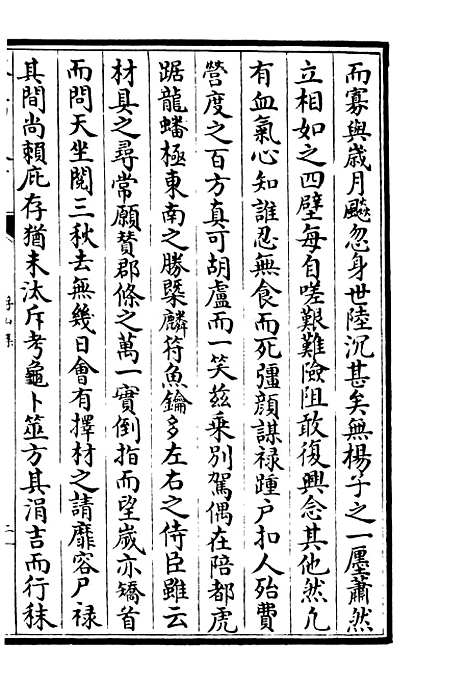 而寡與歳月飈忽身世陸沉甚矣無楊子之一廛蕭然
立相如之四壁每自嗟艱難險阻敢復興念其他然凢
有血氣心知誰忍無食而死彊顔謀禄踵户扣人殆費
營度之百方真可胡盧而一笑兹乗别駕偶在陪都虎
踞龍蟠極東南之勝槩麟符魚鑰多左右之侍臣雖云
材具之尋常願賛郡條之萬一實倒指而望歲亦矯首
而問天坐閲三秋去無幾日㑹有擇材之請靡容尸禄
其間尚賴庇存猶未汰斥考龜卜筮方其涓吉而行秣